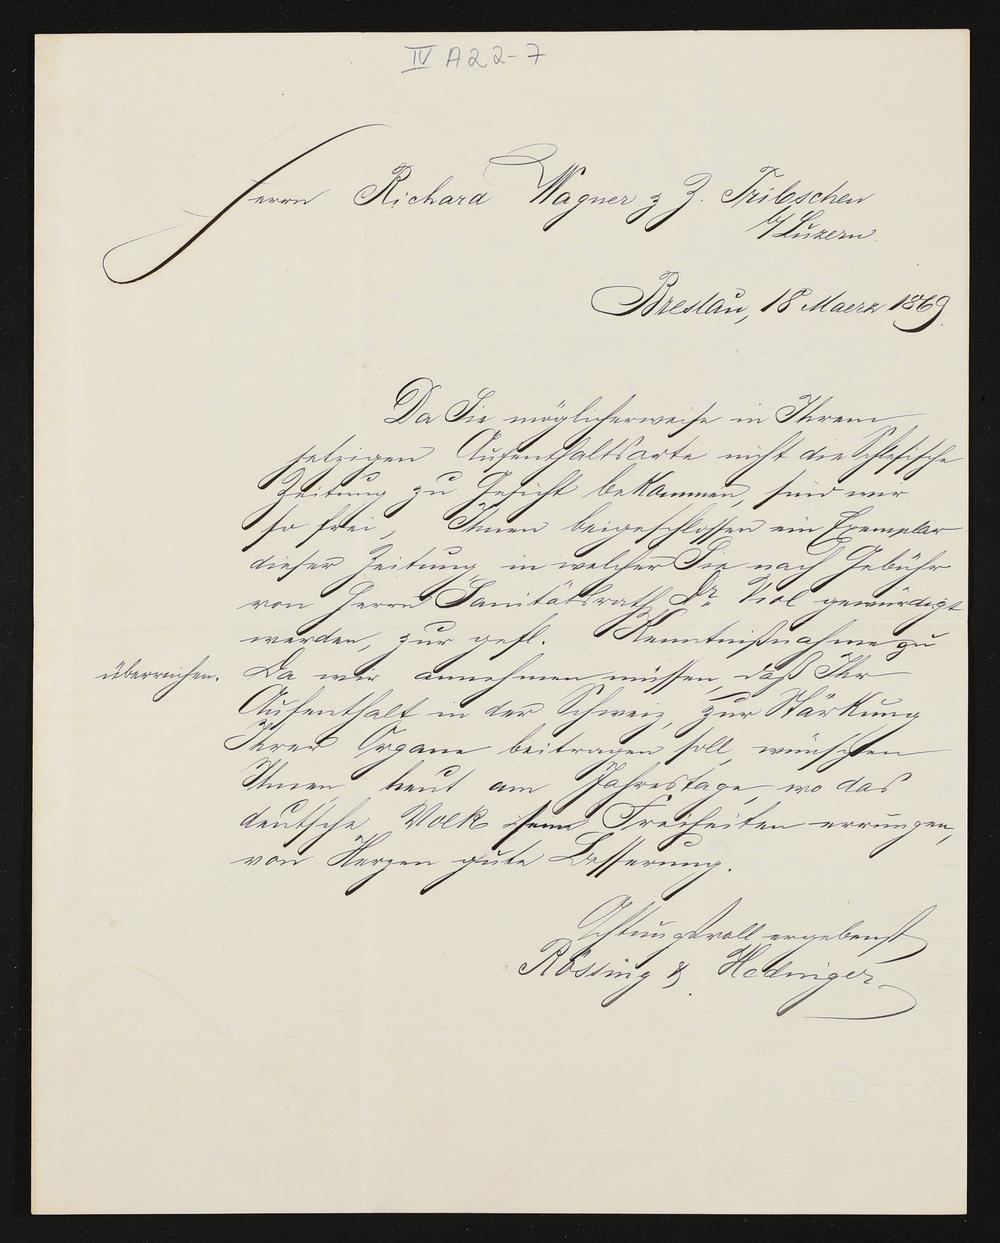 IV A22-7
Herrn Richard Wagner z Z. Tribschen
b/Luzern.
Breslau, 18 Maerz 1869.
Da Sie möglicherweise in Ihrem
jetzigen Aufenthaltsorte nicht die Schlesische
Zeitung zu Gesicht bekommen, sind wir
so frei, Ihnen beigeschlossen ein Exemplar
dieser Zeitung in welcher Sie nach Gebühr
von Herrn Sanitätsrath Dr Viol gewürdigt
werden, zur gefl. Kenntnißnahme zu
überreichen. Da wir annehmen müssen, daß Ihr
Aufenthalt in der Schweiz, zur Stärkung
Ihrer Organe beitragen soll, wünschen
Ihnen heut am Jahrestage, wo das
deutsche Volk seine Freiheiten errungen,
von Herzen gute Besserung.
Achtungsvoll ergebenst
Rössing & Hedinger